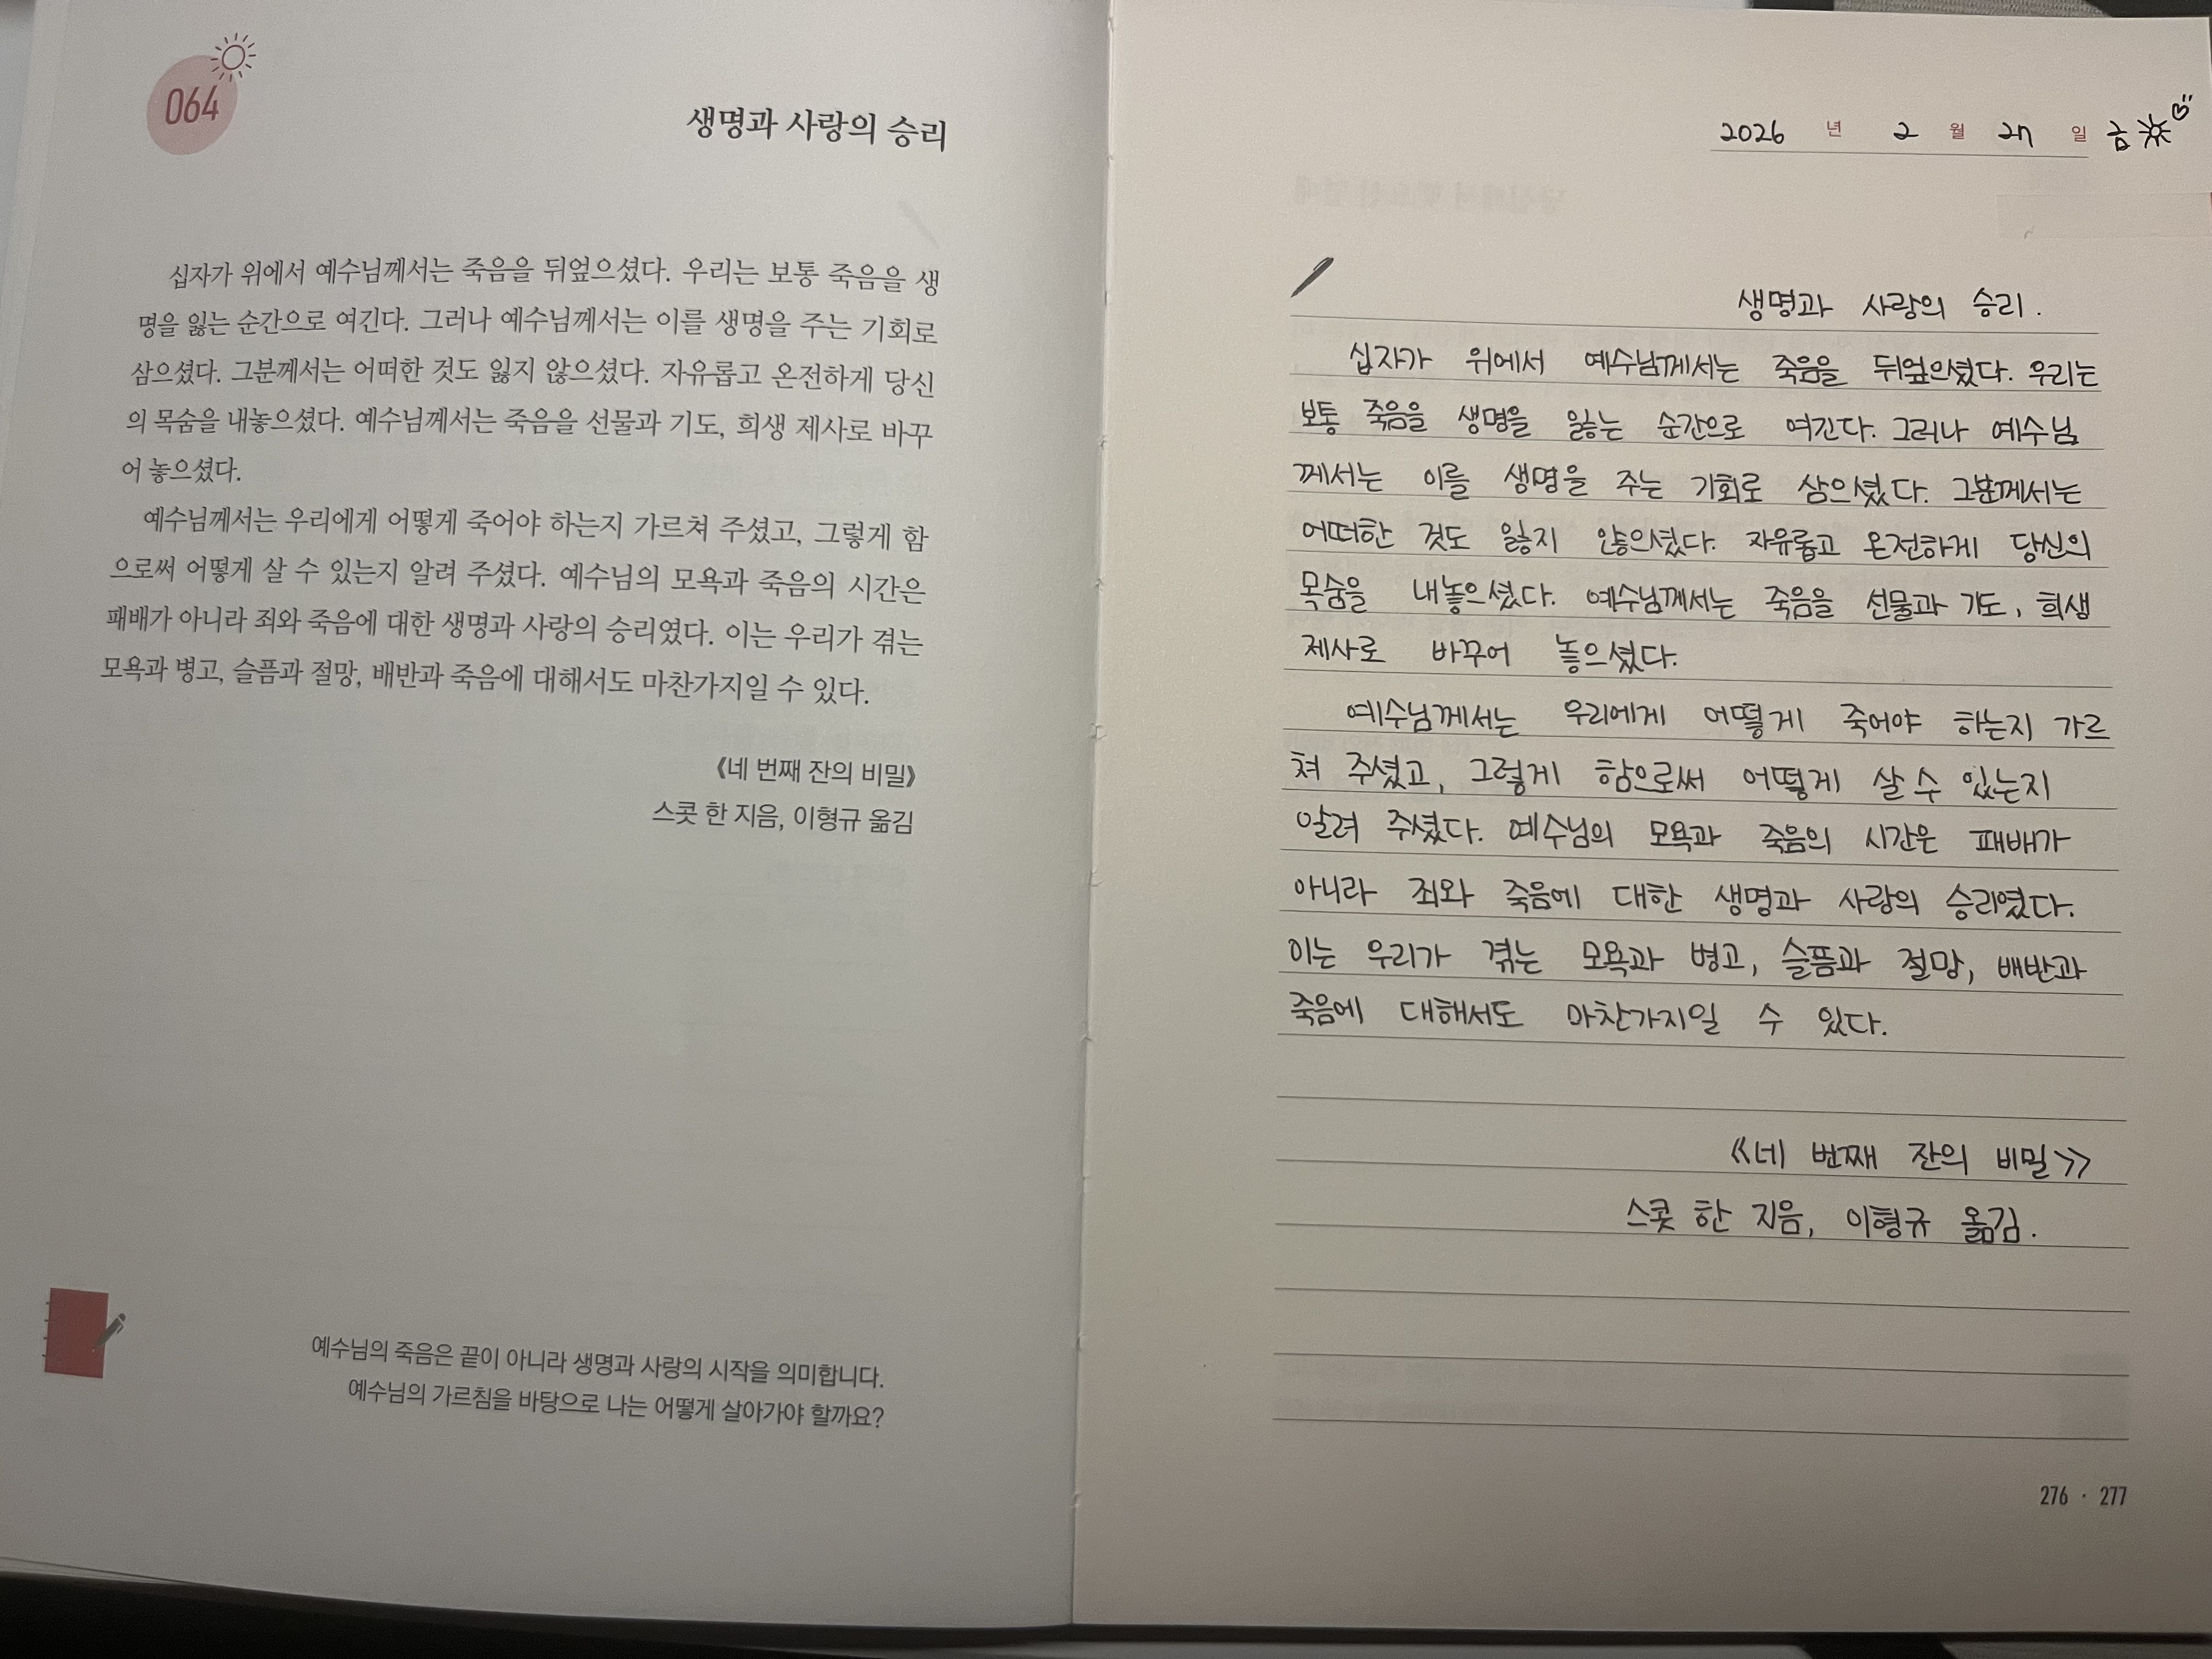 064
생명과 사랑의 승리
십자가 위에서 예수님께서는 죽음을 뒤엎으셨다. 우리는 보통 죽음을 생
명을 잃는 순간으로 여긴다. 그러나 예수님께서는 이를 생명을 주는 기회로
삼으셨다. 그분께서는 어떠한 것도 잃지 않으셨다. 자유롭고 온전하게 당신
의 목숨을 내놓으셨다. 예수님께서는 죽음을 선물과 기도, 희생 제사로 바꾸
어 놓으셨다.
예수님께서는 우리에게 어떻게 죽어야 하는지 가르쳐 주셨고, 그렇게 함
으로써 어떻게 살 수 있는지 알려 주셨다. 예수님의 모욕과 죽음의 시간은
패배가 아니라 죄와 죽음에 대한 생명과 사랑의 승리였다. 이는 우리가 겪는
모욕과 병고, 슬픔과 절망, 배반과 죽음에 대해서도 마찬가지일 수 있다.
《네 번째 잔의 비밀》
스콧 한 지음, 이형규 옮김
예수님의 죽음은 끝이 아니라 생명과 사랑의 시작을 의미합니다.
예수님의 가르침을 바탕으로 나는 어떻게 살아가야 할까요?
2026 년 2 월 27 일 금
생명과 사랑의 승리.
십자가 위에서 예수님께서는 죽음을 뒤엎으셨다. 우리는
보통 죽음을 생명을 잃는 순간으로 여긴다. 그러나 예수님
께서는 이를 생명을 주는 기회로 삼으셨다. 그분께서는
어떠한 것도 잃지 않으셨다. 자유롭고 온전하게 당신의
목숨을 내놓으셨다. 예수님께서는 죽음을 선물과 기도, 희생
제사로 바꾸어 놓으셨다.
예수님께서는 우리에게 어떻게 죽어야 하는지 가르
쳐 주셨고, 그렇게 함으로써 어떻게 살 수 있는지
알려 주셨다. 예수님의 모욕과 죽음의 시간은 패배가
아니라 죄와 죽음에 대한 생명과 사랑의 승리였다.
이는 우리가 겪는 모욕과 병고, 슬픔과 절망, 배반과
죽음에 대해서도 마찬가지일 수 있다.
《네 번째 잔의 비밀》
스콧 한 지음, 이형규 옮김.
276 · 277